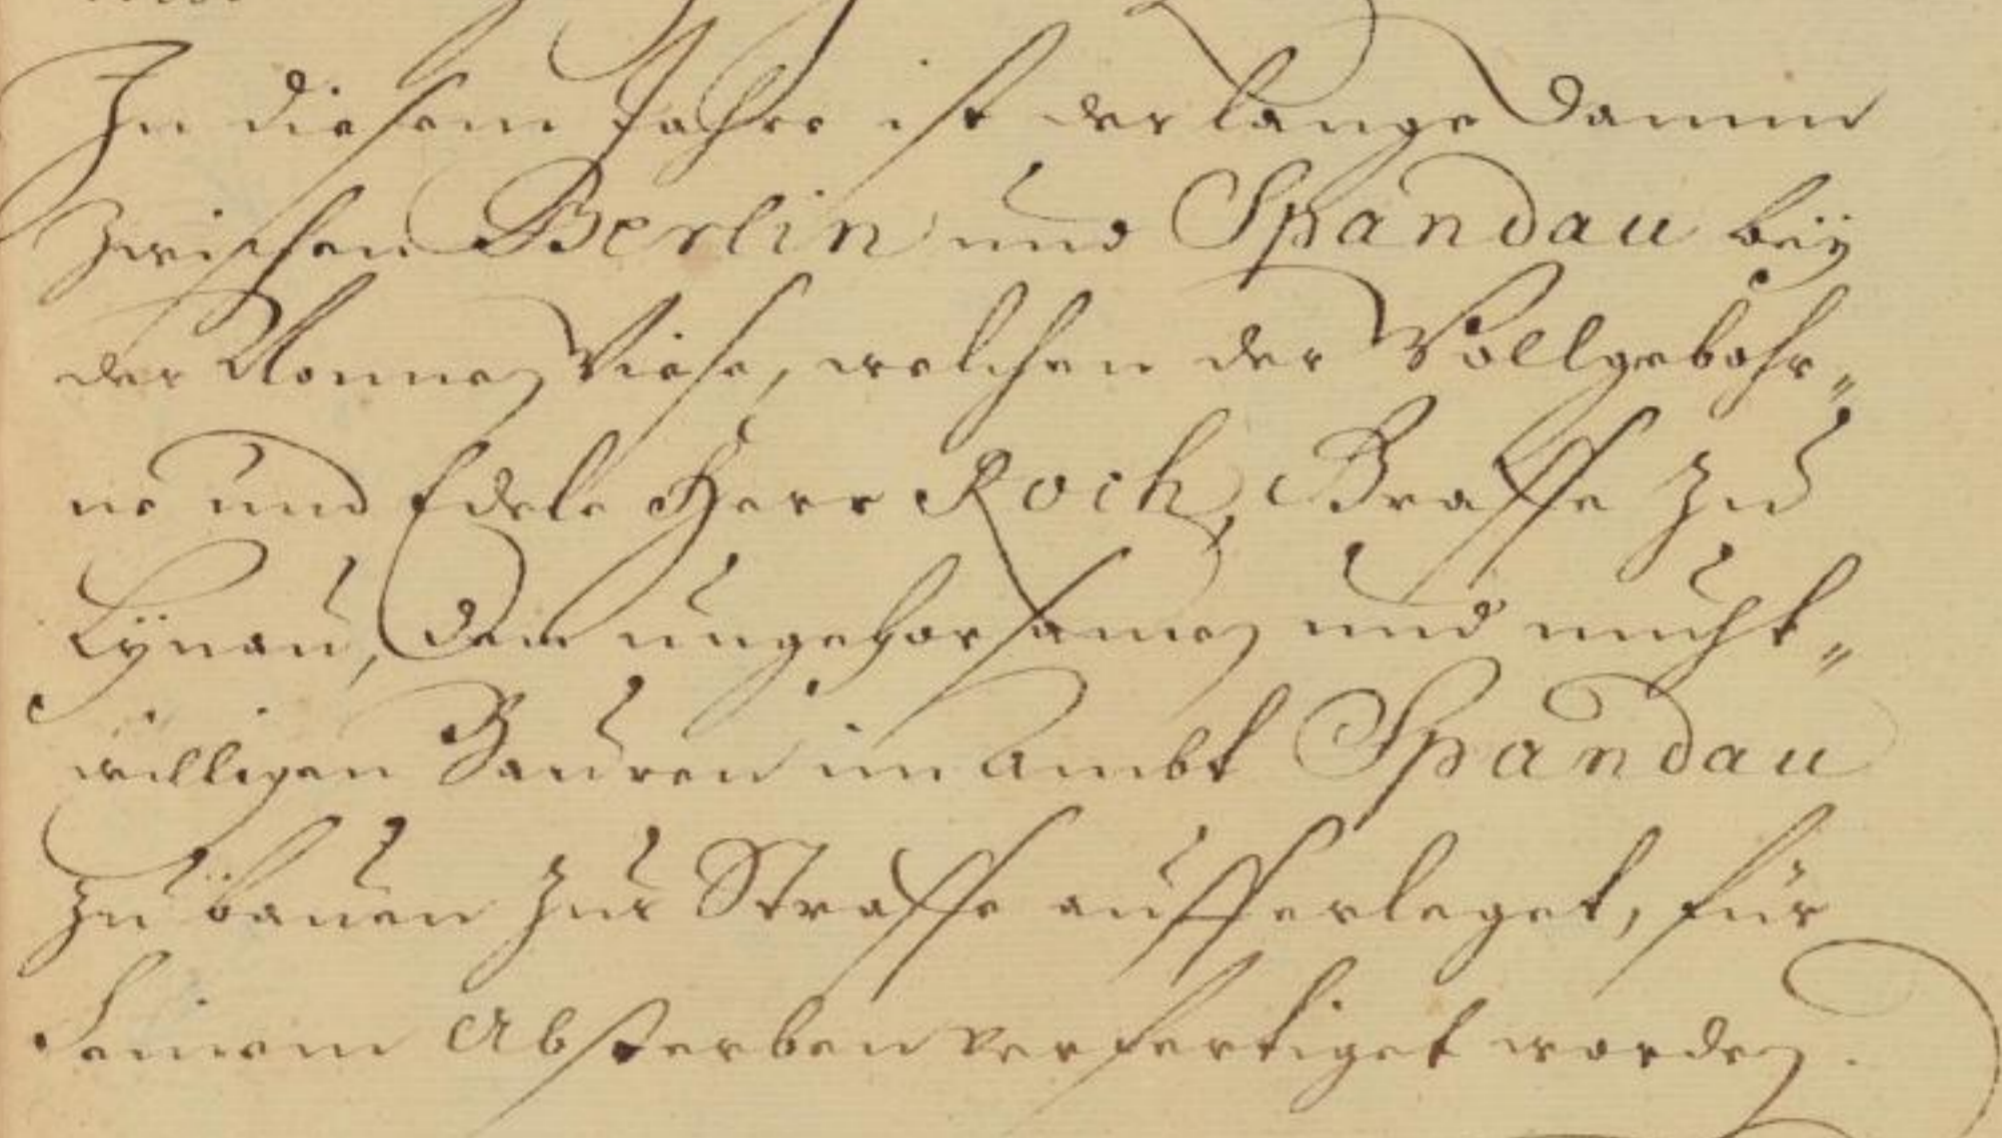 In diesem Jahre ist der lange Damm
zwischen Berlin und Spandau beÿ
der Nonnen Wiese, welchen der Wollgebohr„
ne und Edele Herr Roch, Graffe zu
Lÿnau, den ungehorsamen und muht„
willigen Bauren im Ambt Spandau
zu bauen zur Straffe aufferleget, für
Seinem Absterben verfertiget worden.